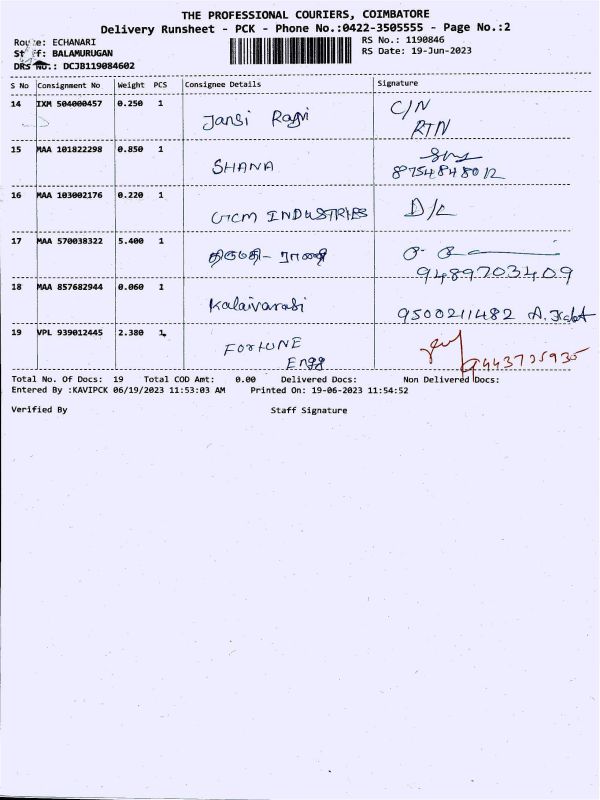 THE PROFESSIONAL COURIERS, COIMBATORE
Delivery Runsheet - PCK - Phone No.:0422-3505555 - Page No.:2
Route: ECHANARI
RS No.: 1190846
Staff: BALAMURUGAN
RS Date: 19-Jun-2023
DRS No.: DCJB119084602
S No Consignment No Weight PCS Consignee Details Signature
14 IXM 504000457 0.250 1 Jansi Rani C/N
RTN
15 MAA 101822298 0.850 1 SHANA
8754848012
16 MAA 103002176 0.220 1 GCM INDUSTRIES D/L
17 MAA 570038322 5.400 1
9489703409
18 MAA 857682944 0.060 1 Kalaivarasi 9500211482
19 VPL 939012445 2.380 1 FORTUNE
Engg 9443735935
Total No. Of Docs: 19 Total COD Amt: 0.00 Delivered Docs: Non Delivered Docs:
Entered By :KAVIPCK 06/19/2023 11:53:03 AM Printed On: 19-06-2023 11:54:52
Verified By Staff Signature